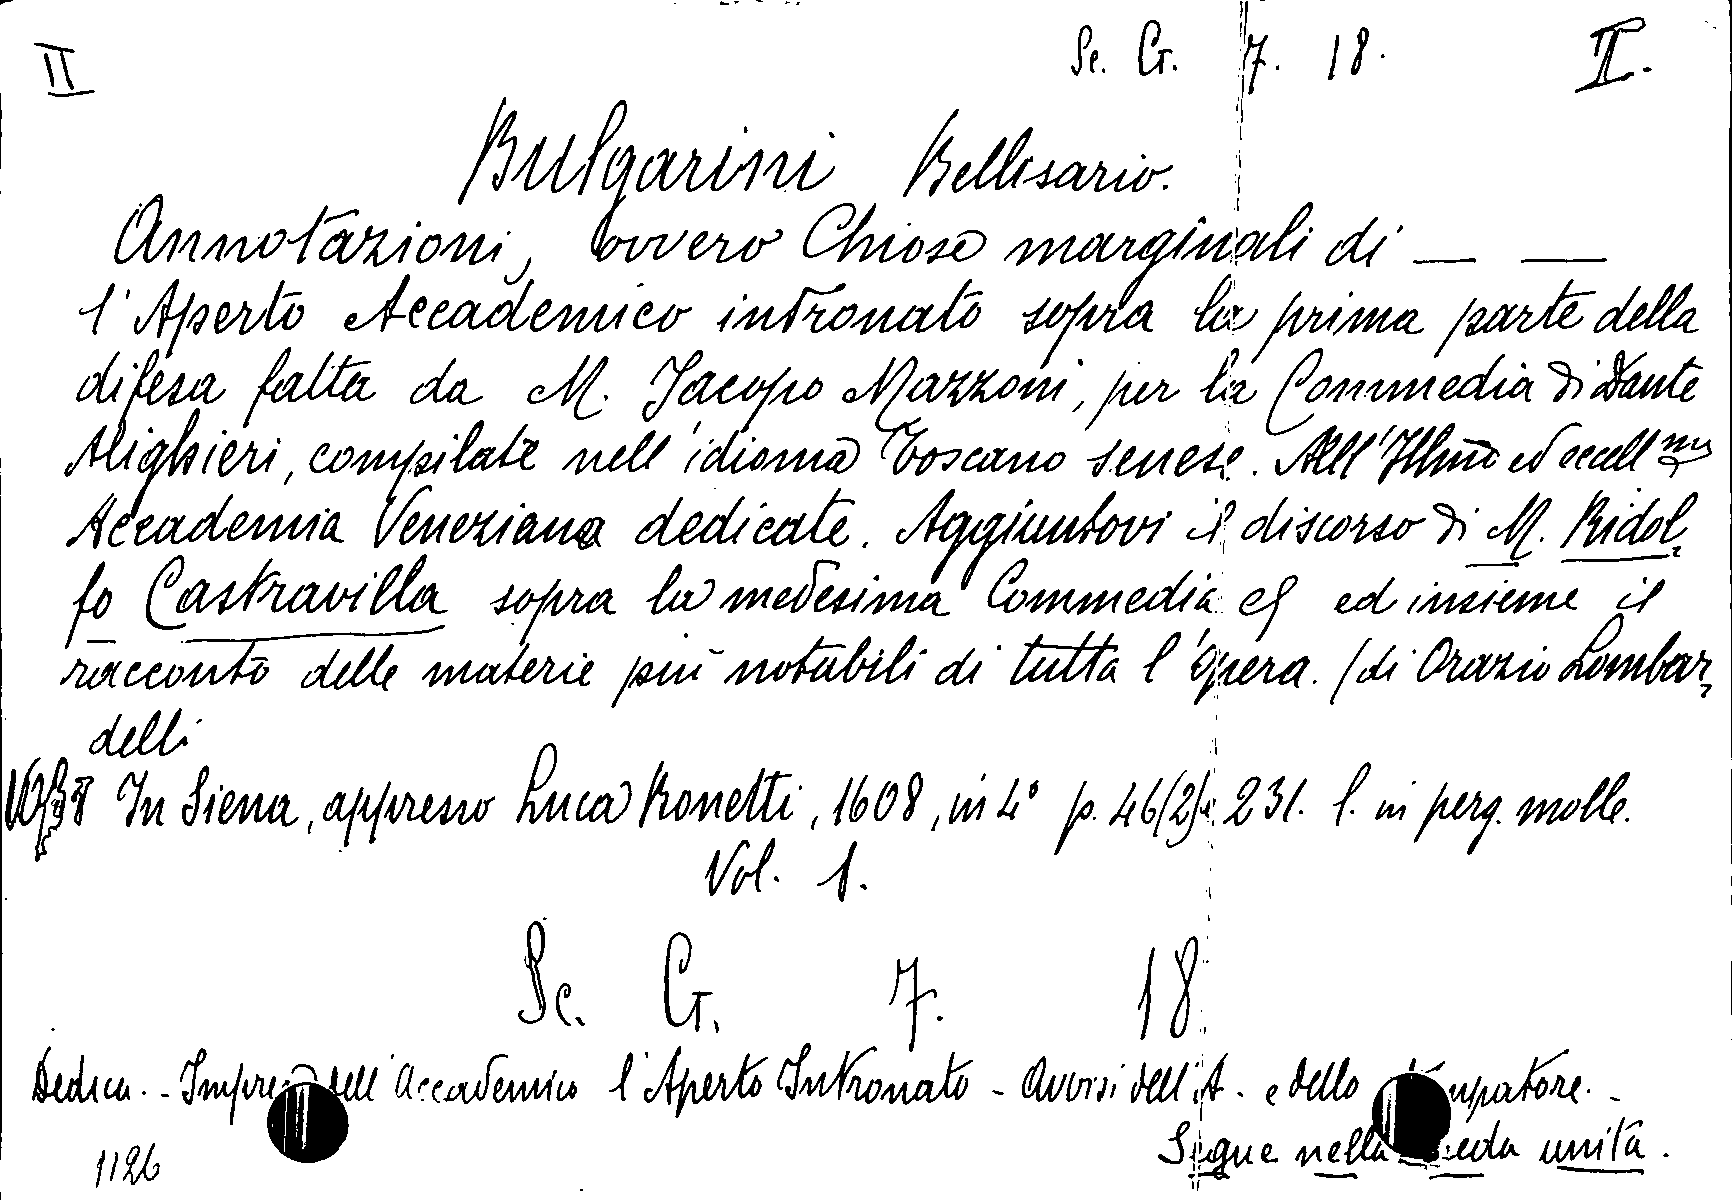 II Sc. Cr. 7. 18. II.
Bulgarini Bellisario.
Annotazioni, ovvero Chiose marginali di — —
l'Aperto Accademico intronato sopra la prima parte della
difesa fatta da M. Jacopo Mazzoni, per la Commedia di Dante
Alighieri, compilate nell'idioma Toscano senese. All'Illmo ed eccellma
Accademia Veneziana dedicate. Aggiuntovi il discorso di M. Ridol-
fo Castravilla sopra la medesima Commedia ed insieme il
racconto delle materie più notabili di tutta l'opera. (di Orazio Lombar-
delli
In Siena, appresso Luca Bonetti, 1608, in 4° p. 46(2) 231. l. in perg. molle.
Vol. 1.
Sc. Cr. 7. 18
Dedica. - Impresa dell'Accademico l'Aperto Intronato - Avvisi dell'A. e dello
Segue nella unita.
1126